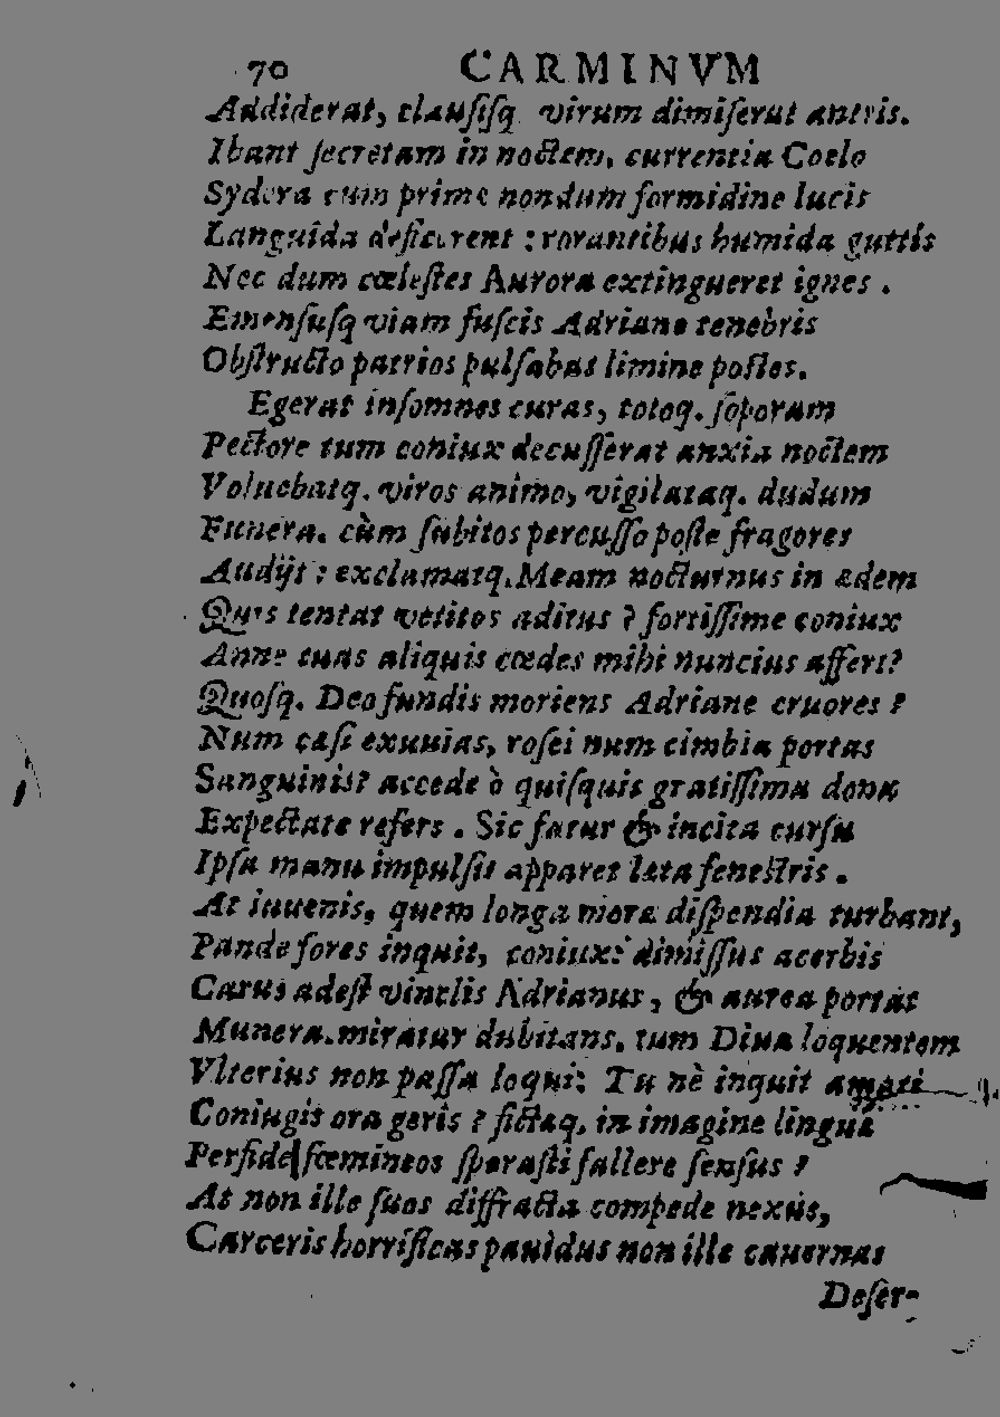 70 CARMINVM
Addiderat, clausisq. virum dimiserat antris.
Ibant secretam in noctem, currentia Coelo
Sydera cum prime nondum formidine lucis
Languida deficerent : rorantibus humida guttis
Nec dum cœlestes Aurora extingueret ignes .
Emensusq viam fuscis Adriane tenebris
Obstructo patrios pulsabas limine postes.
Egerat insomnes curas, totoq. soporum
Pectore tum coniux decusserat anxia noctem
Voluebatq. viros animo, vigilataq. dudum
Funera. cùm subitos percusso poste fragores
Audijt : exclamatq. Meam nocturnus in ædem
Quis tentat vetitos aditus ? fortissime coniux
Anne tuas aliquis cœdes mihi nuncius affert?
Quosq. Deo fundis moriens Adriane cruores ?
Num cæsi exuuias, rosei num cimbia portas
Sanguinis? accede ò quisquis gratissima dona
Expectate refers . Sic fatur & incita cursu
Ipsa manu impulsis apparet læta fenestris .
At iuuenis, quem longa moræ dispendia turbant,
Pande fores inquit, coniux: dimissus acerbis
Carus adest vinclis Adrianus, & aurea portat
Munera. miratur dubitans. tum Diua loquentem
Vlterius non passa loqui: Tu nè inquit amati
Coniugis ora geris ? fictaq. in imagine linguæ
Perfide fœmineos sperasti fallere sensus ?
At non ille suos diffracta compede nexus,
Carceris horrificas pauidus non ille cauernas
Deser-